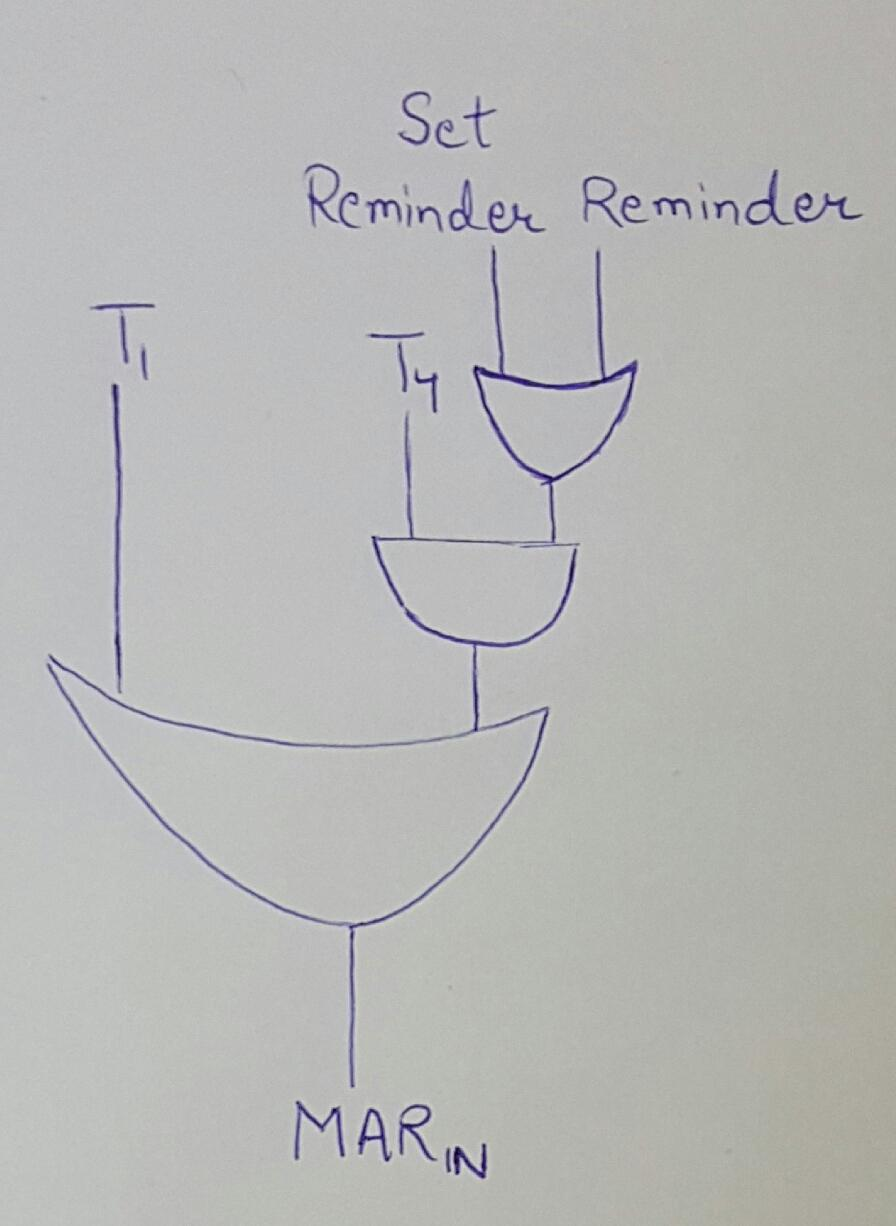 Set
Reminder Reminder
T1
T4
MARIN